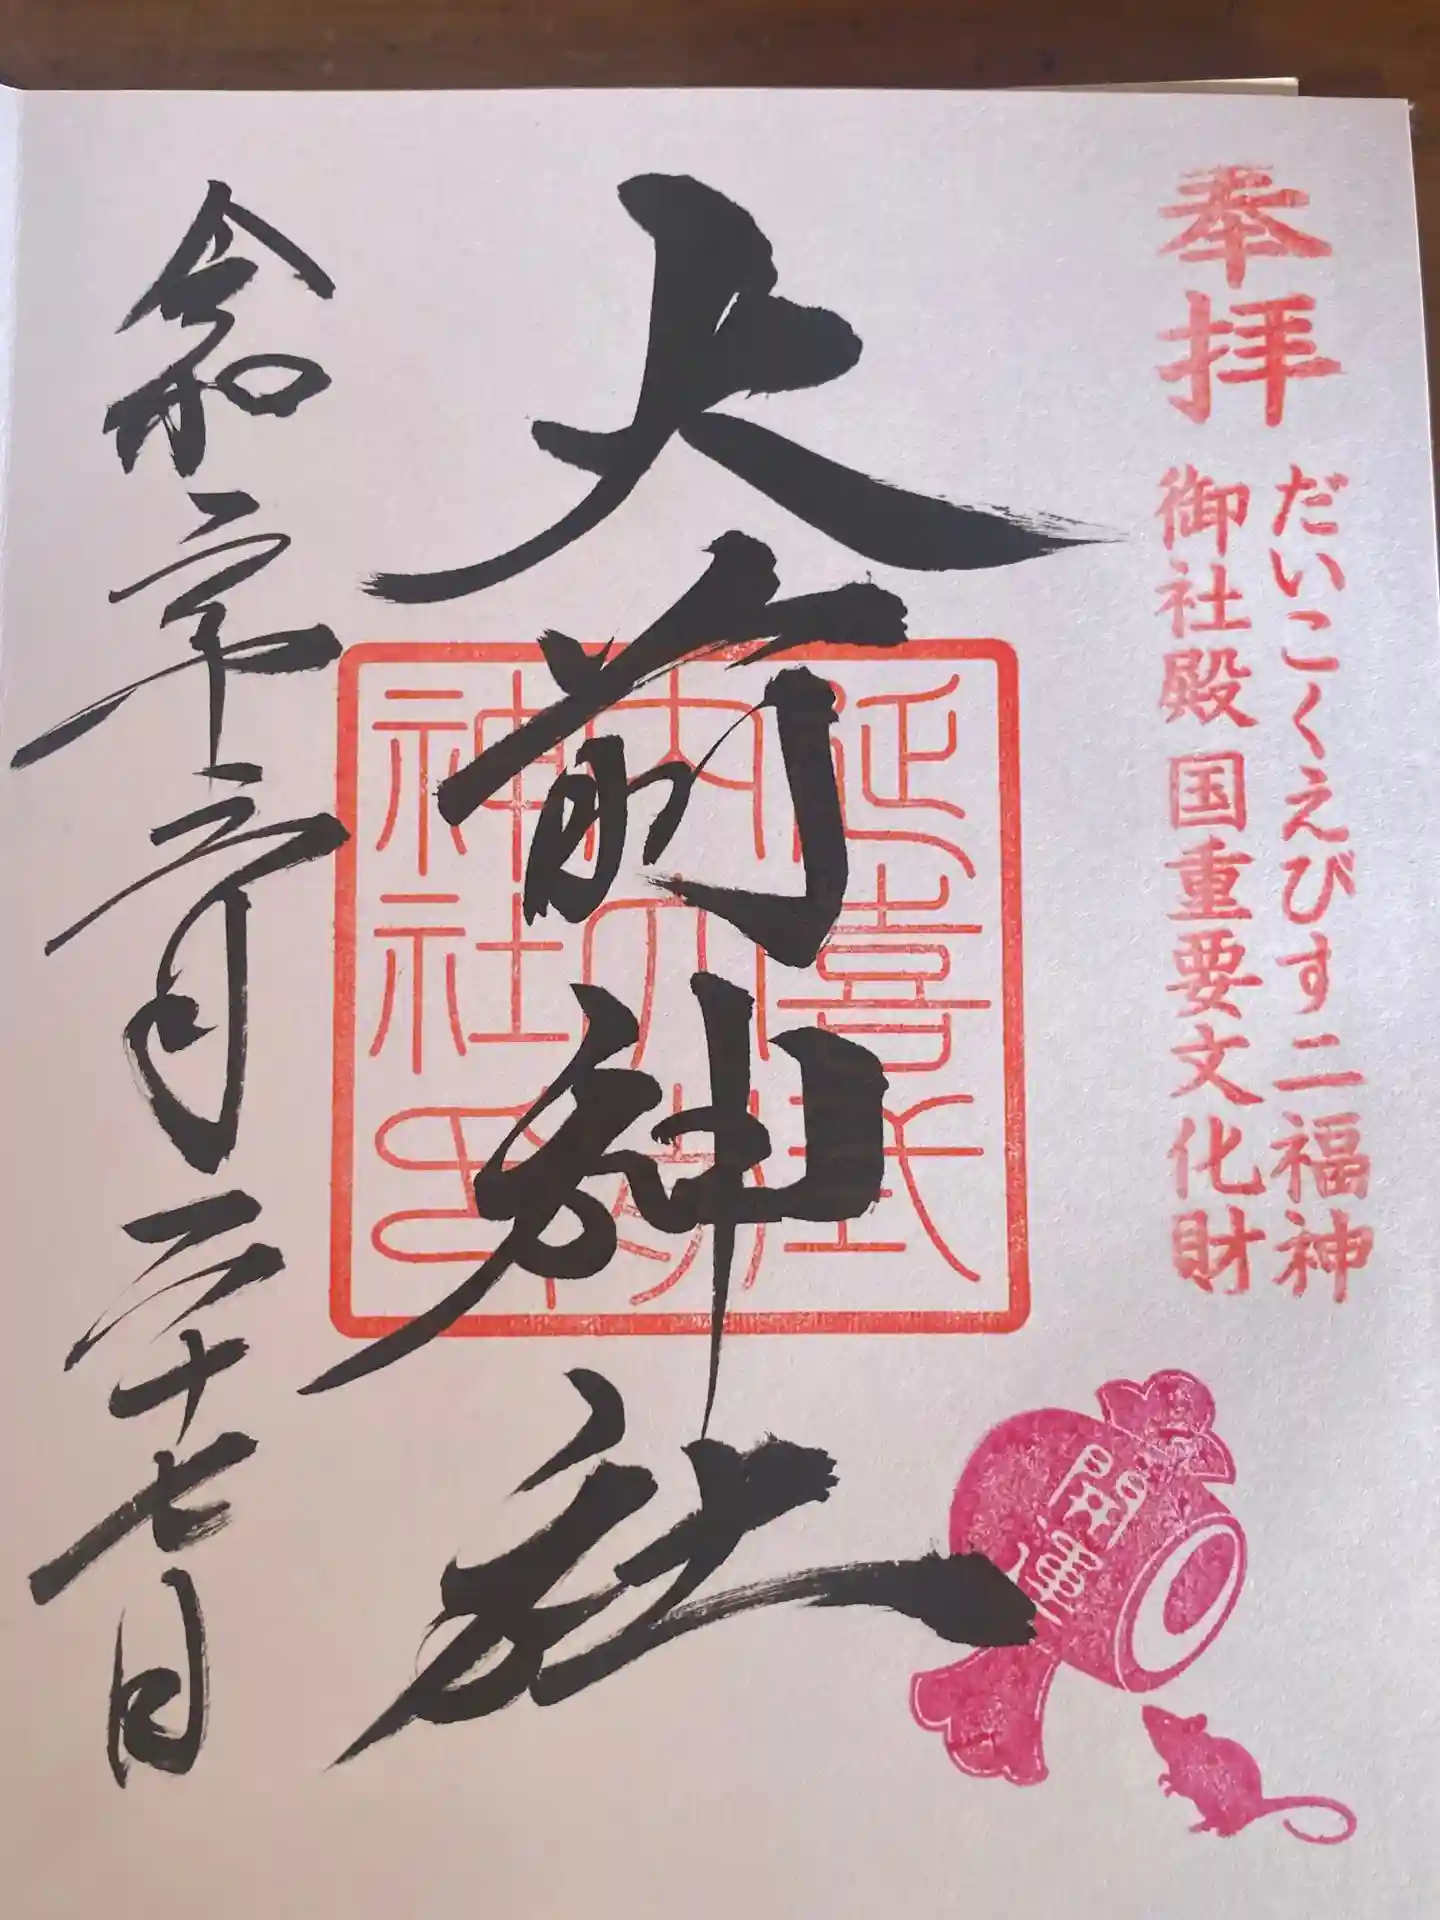 奉拝
だいこくえびす二福神
御社殿 国重要文化財
大前神社
延喜式
内大前
神社印
開運
令和二年 月二十七日